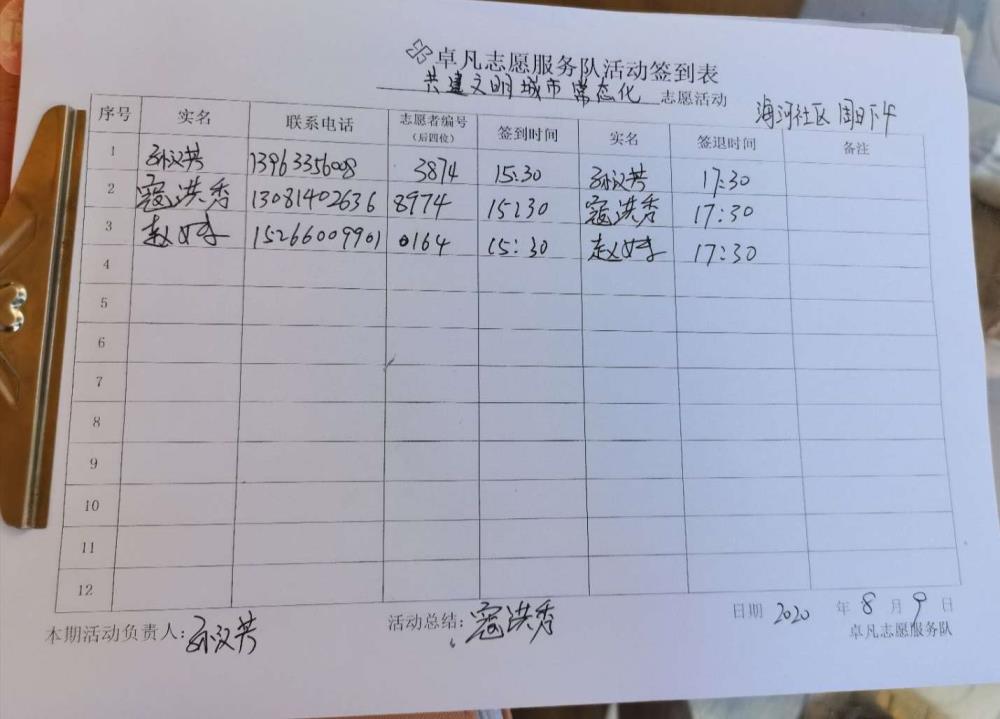 卓凡志愿服务队活动签到表
共建文明城市常态化 志愿活动 海河社区 周日下午
序号 实名 联系电话 志愿者编号(后四位) 签到时间 实名 签退时间 备注
1 孙汉芳 13963356008 3874 15:30 孙汉芳 17:30
2 寇洪秀 13081402636 8974 15:30 寇洪秀 17:30
3 赵婷 15266009901 0164 15:30 赵婷 17:30
4
5
6
7
8
9
10
11
12
本期活动负责人:孙汉芳 活动总结:寇洪秀 日期 2020 年 8 月 9 日
卓凡志愿服务队